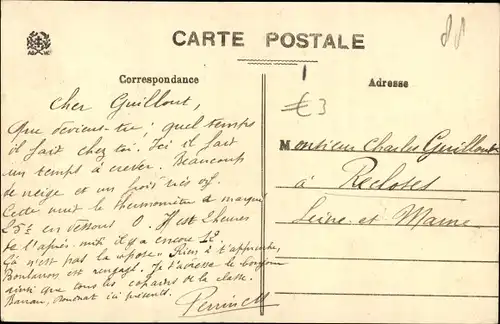 CARTE POSTALE
Correspondance
Adresse
€3
Cher Guillout,
Que deviens-tu ; quel temps
il fait chez toi. Ici il fait
un temps à crever. Beaucoup
de neige et un froid très vif.
Cette nuit le thermomètre a marqué
25° en dessous 0. Il est 2 heures
de l'après-midi il y a encore 12.
Ça n'est pas la "pose" Rien à t'apprendre,
rengagé. Je t'adresse le bonjour
ainsi que tous les copains de la classe.
ici présents.
Monsieur Charles Guillout
à Recloses
Seine-et-Marne